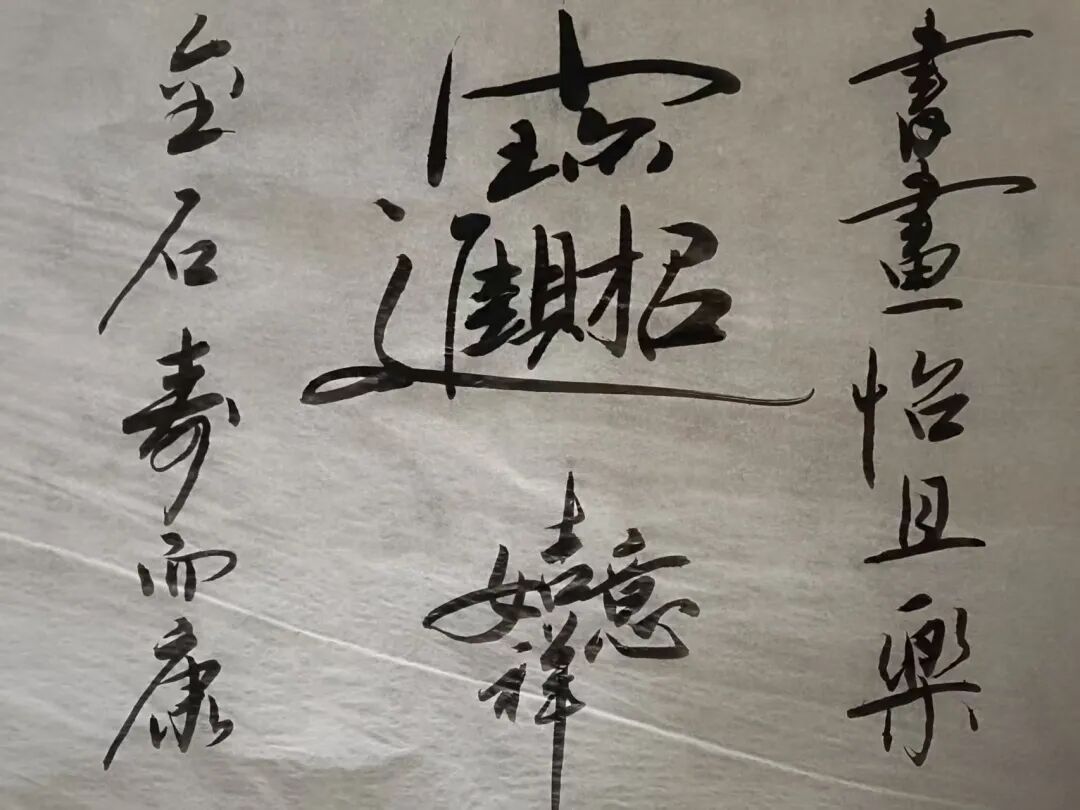 書畫怡且樂
招財進寳
吉祥如意
金石壽而康